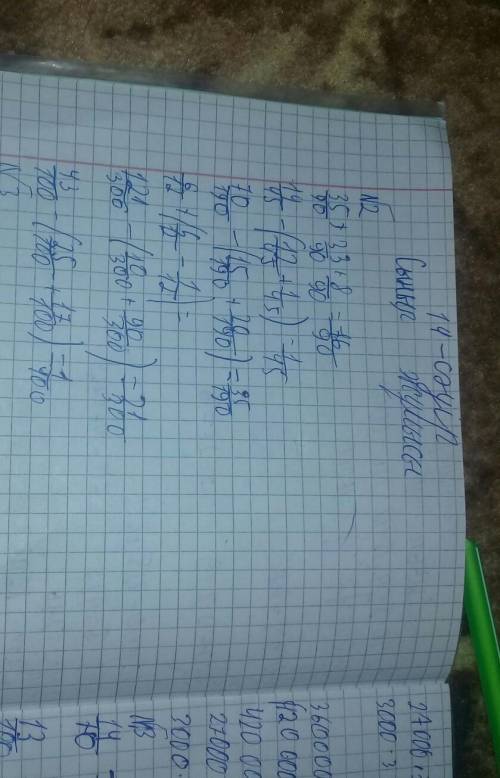 14-сәуір
Сынып жұмысы
№2
35/90 + 33/90 + 8/90 = 76/90
14/45 - (12/45 + 1/45) = 1/45
70/190 - (15/190 + 20/190) = 35/190
6/12 + (5/12 - 1/12) =
121/300 - (10/300 + 90/300) = 21/300
43/100 - (25/100 + 17/100) = 1/100
№3
27000
3000 · 3
360000
120 000
420 00
27000
3000 ·
№3
14/70 -
13/100